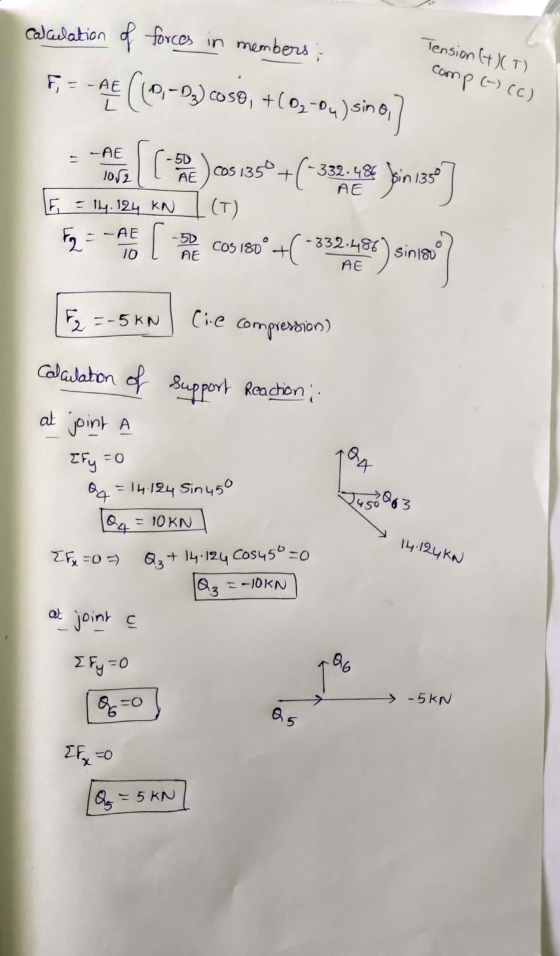 Calculation of forces in members;-
Tension (+) (T)
Comp (-) (C)
F₁ = -AE/L [(D₁-D₃) cosθ₁ + (D₂-D₄) sinθ₁]
= -AE/10√2 [(-50/AE) cos 135° + (-332.486/AE) sin 135°]
F₁ = 14.124 KN (T)
F₂ = -AE/10 [-50/AE cos 180° + (-332.486/AE) sin 180°]
F₂ = -5 KN (i.e compression)
Calculation of Support Reaction;-
at joint A
ΣFy = 0
Q₄ = 14.124 Sin45°
Q₄ = 10 KN
Q₄
45°
Q₃ 3
14.124 KN
ΣFx = 0 ⇒ Q₃ + 14.124 Cos45° = 0
Q₃ = -10 KN
at joint C
ΣFy = 0
Q₆ = 0
Q₆
-5 KN
Q₅
ΣFx = 0
Q₅ = 5 KN